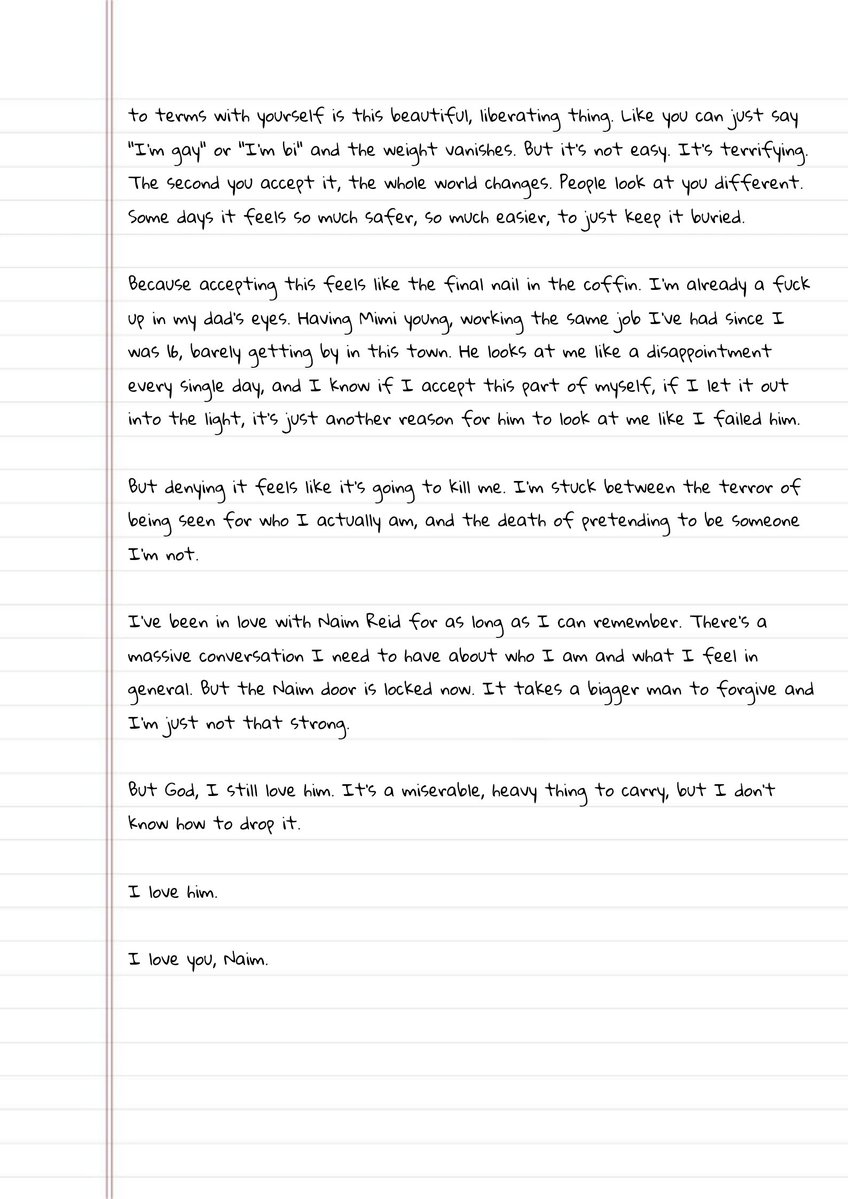 to terms with yourself is this beautiful, liberating thing. Like you can just say
"I'm gay" or "I'm bi" and the weight vanishes. But it's not easy. It's terrifying.
The second you accept it, the whole world changes. People look at you different.
Some days it feels so much safer, so much easier, to just keep it buried.
Because accepting this feels like the final nail in the coffin. I'm already a fuck
up in my dad's eyes. Having Mimi young, working the same job I've had since I
was 16, barely getting by in this town. He looks at me like a disappointment
every single day, and I know if I accept this part of myself, if I let it out
into the light, it's just another reason for him to look at me like I failed him.
But denying it feels like it's going to kill me. I'm stuck between the terror of
being seen for who I actually am, and the death of pretending to be someone
I'm not.
I've been in love with Naim Reid for as long as I can remember. There's a
massive conversation I need to have about who I am and what I feel in
general. But the Naim door is locked now. It takes a bigger man to forgive and
I'm just not that strong.
But God, I still love him. It's a miserable, heavy thing to carry, but I don't
know how to drop it.
I love him.
I love you, Naim.